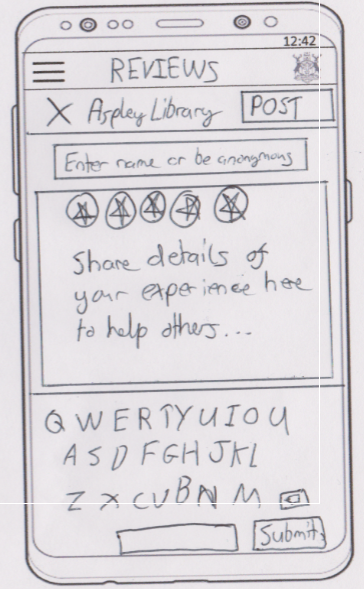 12:42
REVIEWS
X Aspley Library POST
Enter name or be anonymous
Share details of
your experience here
to help others...
Q W E R T Y U I O U
A S D F G H J K L
Z X C V B N M
Submit